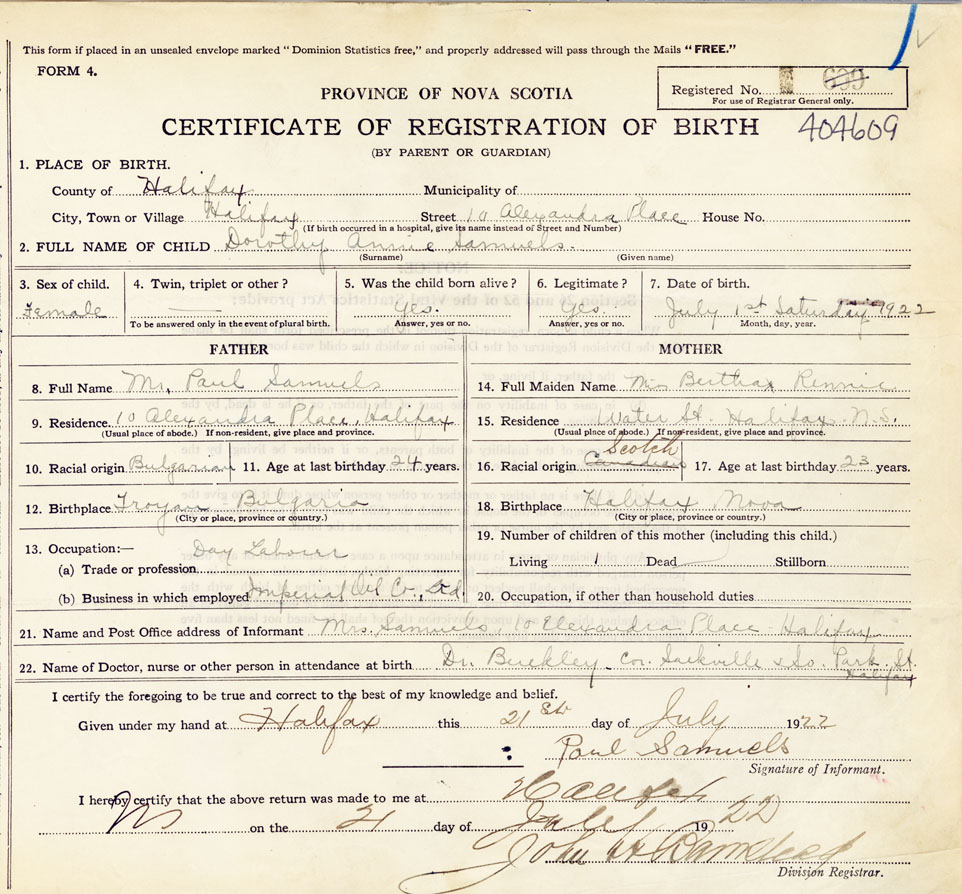 This form if placed in an unsealed envelope marked "Dominion Statistics free," and properly addressed will pass through the Mails "FREE."
FORM 4.
Registered No. 699
For use of Registrar General only.
PROVINCE OF NOVA SCOTIA
CERTIFICATE OF REGISTRATION OF BIRTH 404609
(BY PARENT OR GUARDIAN)
1. PLACE OF BIRTH.
County of Halifax Municipality of
City, Town or Village Halifax Street 10 Alexandra Place House No.
(If birth occurred in a hospital, give its name instead of Street and Number)
2. FULL NAME OF CHILD Dorothy Annie Samuels.
(Surname) (Given name)
3. Sex of child. 4. Twin, triplet or other? 5. Was the child born alive? 6. Legitimate? 7. Date of birth.
Female Yes. Yes. July 1st Saturday 1922
To be answered only in the event of plural birth. Answer, yes or no. Answer, yes or no. Month, day, year.
FATHER MOTHER
8. Full Name Mr. Paul Samuels 14. Full Maiden Name Miss Bertha Rennie
9. Residence. 10 Alexandra Place, Halifax 15. Residence Water St. Halifax N.S.
(Usual place of abode.) If non-resident, give place and province. (Usual place of abode.) If non-resident, give place and province.
Scotch
10. Racial origin Bulgarian 11. Age at last birthday 24 years. 16. Racial origin Canadian 17. Age at last birthday 23 years.
12. Birthplace Troyan Bulgaria 18. Birthplace Halifax Nova
(City or place, province or country.) (City or place, province or country.)
13. Occupation:— Day Labourer 19. Number of children of this mother (including this child.)
(a) Trade or profession Living 1 Dead Stillborn
(b) Business in which employed Imperial Oil Co., Ltd. 20. Occupation, if other than household duties
21. Name and Post Office address of Informant Mrs. Samuels, 10 Elexandra Place Halifax
22. Name of Doctor, nurse or other person in attendance at birth Dr. Buckley Cor. Sackville & So. Park St.
Halifax
I certify the foregoing to be true and correct to the best of my knowledge and belief.
Given under my hand at Halifax this 21st day of July 1922
Paul Samuels
Signature of Informant.
I hereby certify that the above return was made to me at Halifax
NS on the 21 day of July 1922
John
Division Registrar.